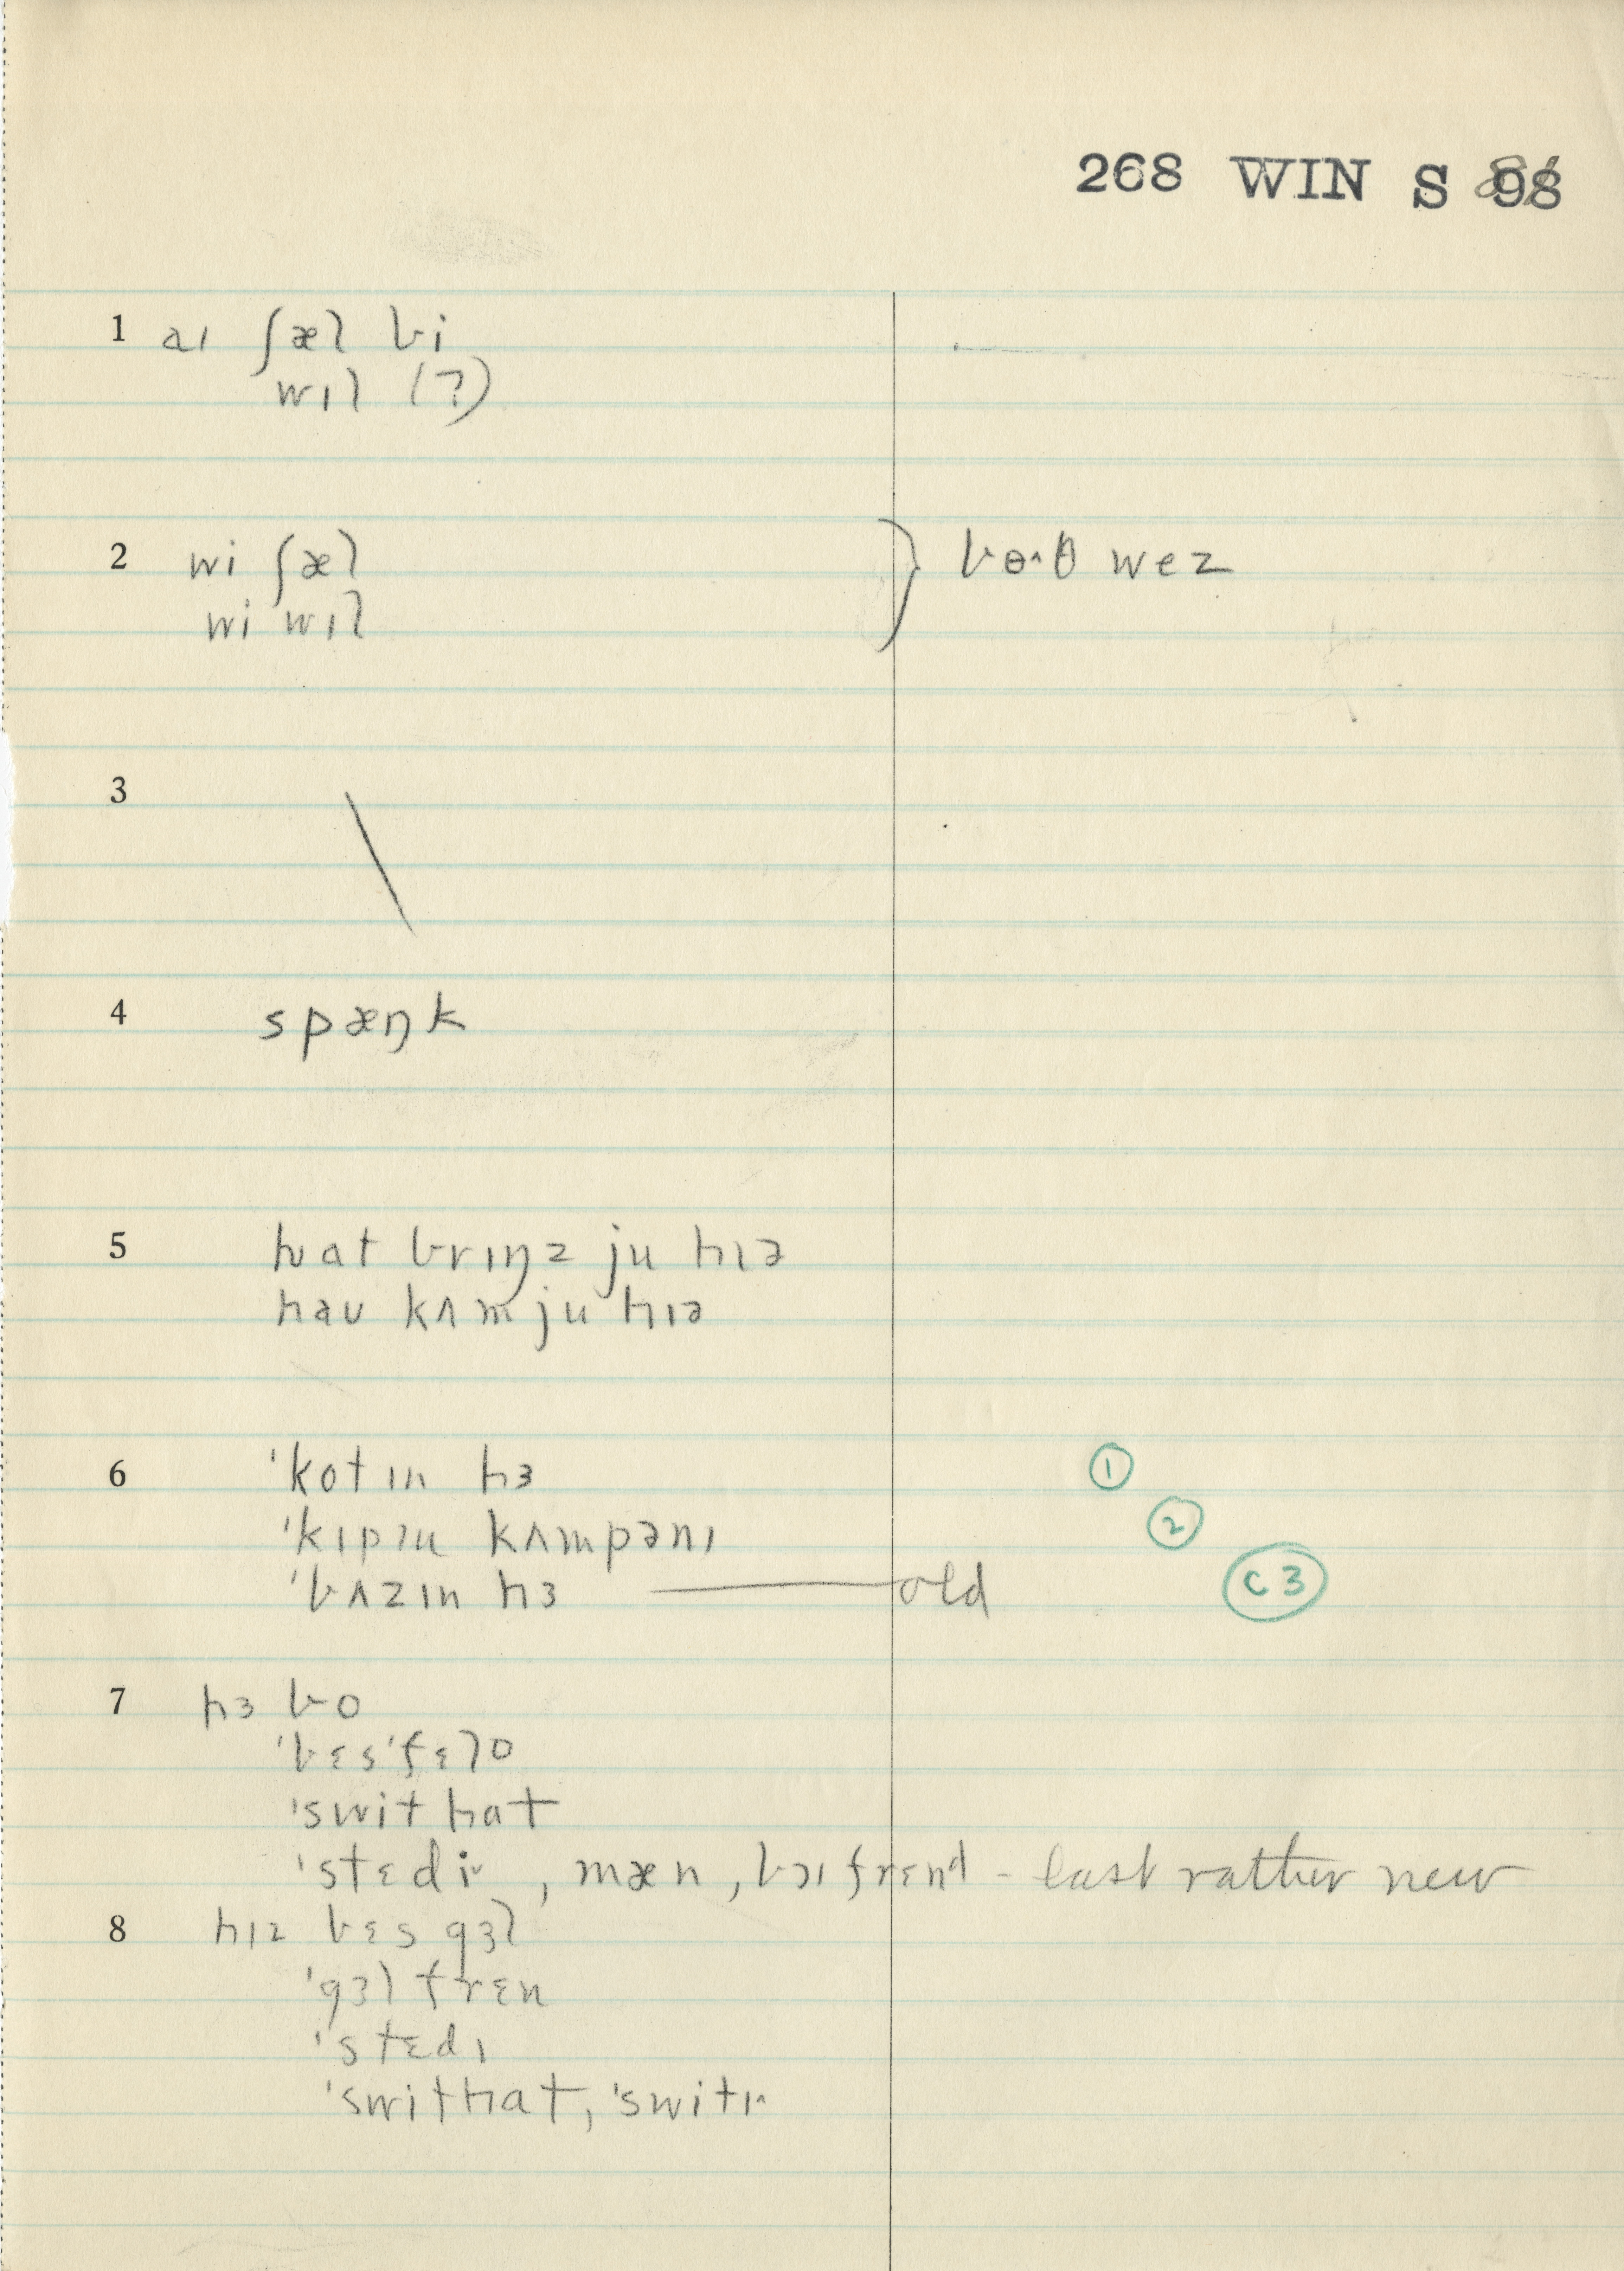 268 WIN S
1 aɪ ʃæl bi
wɪl (?)
2 wi ʃæl } bɵ^θ wez
wi wɪl
3 \
4 spæŋk
5 hwat brɪŋz ju hɪə
hau kʌm ju hɪə
6 'kotɪn hɜ ①
'kɪpɪn kʌmpənɪ ②
'bʌzɪn hɜ — old (c3)
7 hɜ bo
'bɛs'fɛlo
'swithat
'stɛdi˅ , mæn, bɔɪfrɛnd - last rather new
8 hɪz bɛs gɜl
'gɜlfrɛn
'stɛdɪ
'swithat, 'switɪ^